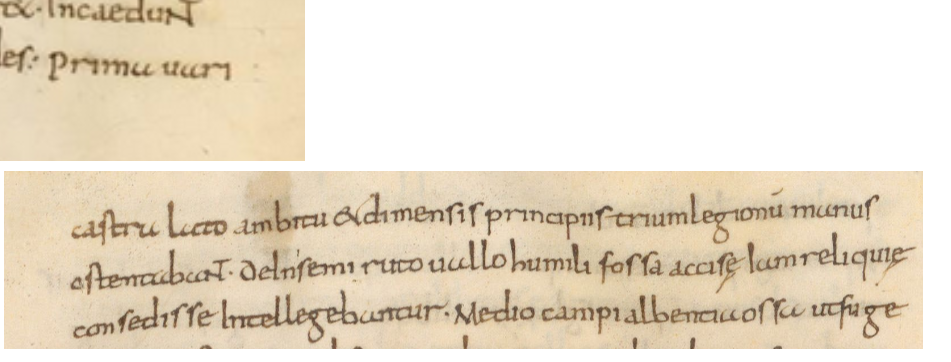 &. Incaedunt
les: prima uari
castra lato ambitu & dimensis principiis trium legionū manus
ostentabant. Dein semi ruto uallo humili fossa accisę Iam reliquię
consedisse Intellegebantur. Medio campi albentia ossa ut fuge